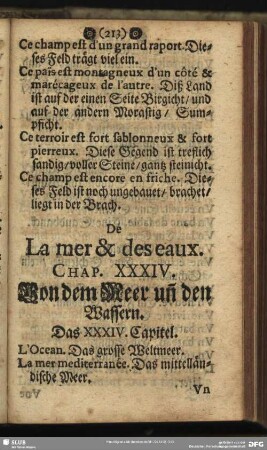 (213)
Ce champ est d'un grand raport. Die-
ses Feld trägt viel ein.
Ce païs est montagneux d'un côté &
marécageux de l'autre. Diß Land
ist auf der einen Seite Birgicht/ und
auf der andern Morastig / Sum-
pficht.
Ce terroir est fort sablonneux & fort
pierreux. Diese Gegend ist treflich
sandig/ voller Steine/ gantz steinicht.
Ce champ est encore en friche. Die-
ses Feld ist noch ungebauet/ brachet/
liegt in der Brach.
De
La mer & des eaux.
CHAP. XXXIV.
Von dem Meer uñ den
Wassern.
Das XXXIV. Capitel.
L'Ocean. Das grosse Weltmeer.
La mer mediterranée. Das mittellän-
dische Meer.
Vn
SLUB